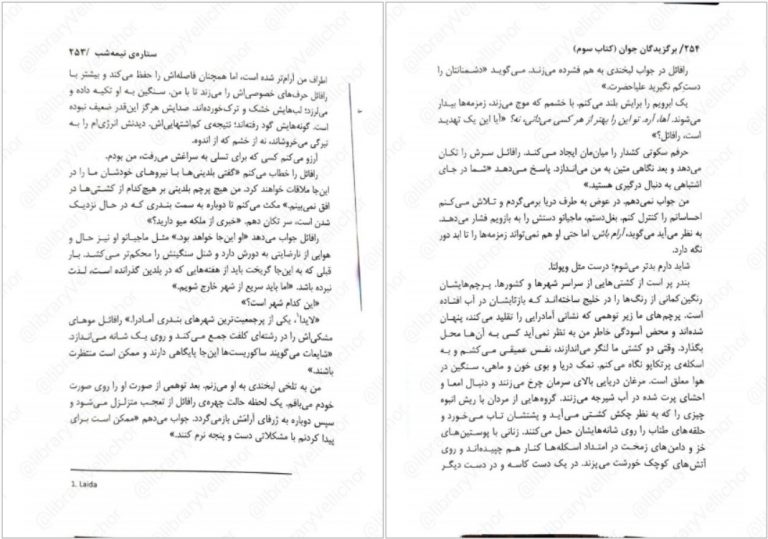 ستاره‌ی نیمه‌شب /۲۵۳
اطراف من آرام‌تر شده است، اما همچنان فاصله‌اش را حفظ می‌کند و بیشتر با
رافائل حرف‌های خصوصی‌اش را می‌زند تا با من. سنگین به او تکیه داده و
می‌لرزد؛ لب‌هایش خشک و ترک‌خورده‌اند. صدایش هرگز این‌قدر ضعیف نبوده
است. گونه‌هایش گود رفته‌اند؛ نتیجه‌ی کم‌اشتهایی‌اش. دیدنش انرژی‌ام را به
تیرگی می‌خروشاند، نه از خشم که از اندوه.
آرزو می‌کنم کسی که برای تسلی به سراغش می‌رفت، من بودم.
رافائل را خطاب می‌کنم «گفتی بلدینی‌ها با نیروهای خودشان ما را در
این‌جا ملاقات خواهند کرد. من هیچ پرچم بلدینی بر هیچ‌کدام از کشتی‌ها در
افق نمی‌بینم.» مکث می‌کنم تا دوباره به سمت بندری که در حال نزدیک
شدن است، سر تکان دهم. «خبری از ملکه میو دارید؟»
رافائل جواب می‌دهد «او این‌جا خواهد بود.» مثل ماجیانو او نیز حال و
هوایی از نارضایتی به دورش دارد و شنل سنگینش را محکم‌تر می‌کشد. بار
قبلی که به این‌جا گریخت باید از هفته‌هایی که در بلدین گذرانده است، لذت
نبرده باشد. «اما باید سریع از شهر خارج شویم.»
«این کدام شهر است؟»
«لایدا¹، یکی از پرجمعیت‌ترین شهرهای بندری آمادرا.» رافائل موهای
مشکی‌اش را در رشته‌ای کلفت جمع می‌کند و روی یک شانه می‌اندازد.
«شایعات می‌گویند ساکوریست‌ها این‌جا پایگاهی دارند و ممکن است منتظرت
باشند.»
من به تلخی لبخندی به او می‌زنم. بعد توهمی از صورت او را روی صورت
خودم می‌بافم. یک لحظه حالت چهره‌ی رافائل از تعجب متزلزل می‌شود و
سپس دوباره به ژرفای آرامَش بازمی‌گردد. جواب می‌دهم «ممکن است برای
پیدا کردنم با مشکلاتی دست و پنجه نرم کنند.»
1. Laida
۲۵۴/ برگزیدگان جوان (کتاب سوم)
رافائل در جواب لبخندی به هم فشرده می‌زند. می‌گوید «دشمنانتان را
دست‌کم نگیرید علیاحضرت.»
یک ابرویم را برایش بلند می‌کنم. با خشمم که موج می‌زند، زمزمه‌ها بیدار
می‌شوند. آها، آره. تو این را بهتر از هر کسی می‌دانی، نه؟ «آیا این یک تهدید
است، رافائل؟»
حرفم سکوتی کشدار را میان‌مان ایجاد می‌کند. رافائل سرش را تکان
می‌دهد و بعد نگاهی متین به من می‌اندازد. پاسخ می‌دهد «شما در جای
اشتباهی به دنبال درگیری هستید.»
من جواب نمی‌دهم. در عوض به طرف دریا برمی‌گردم و تلاش می‌کنم
احساساتم را کنترل کنم. بغل‌دستم، ماجیانو دستش را به بازویم فشار می‌دهد.
به نظر می‌آید می‌گوید، آرام باش. اما حتی او هم نمی‌تواند زمزمه‌ها را تا ابد دور
نگه دارد.
شاید دارم بدتر می‌شوم؛ درست مثل ویولتا.
بندر پر است از کشتی‌هایی از سراسر شهرها و کشورها. پرچم‌هایشان
رنگین‌کمانی از رنگ‌ها را در خلیج ساخته‌اند که بازتابشان در آب افتاده
است. پرچم‌های ما زیر توهمی که نشانی آمادرایی را تقلید می‌کند، پنهان
شده‌اند و محض آسودگی خاطر من به نظر نمی‌آید کسی به آن‌ها محل
بگذارد. وقتی دو کشتی ما لنگر می‌اندازند، نفس عمیقی می‌کشم و به
اسکله‌ی پرتکاپو نگاه می‌کنم. نمک دریا و بوی خون و ماهی، سنگین در
هوا معلق است. مرغان دریایی بالای سرمان چرخ می‌زنند و دنبال امعا و
احشای پرت شده در آب شیرجه می‌زنند. گروه‌هایی از مردان با ریش انبوه
چیزی را که به نظر چکش کشتی می‌آید و پشتشان تاب می‌خورد و
حلقه‌های طناب را روی شانه‌هایشان حمل می‌کنند. زنانی با پوستین‌های
خز و دامن‌های زمخت در امتداد اسکله‌ها کنار هم چپیده‌اند و روی
آتش‌های کوچک خورشت می‌پزند. در یک دست کاسه و در دست دیگر
@libraryVellichor